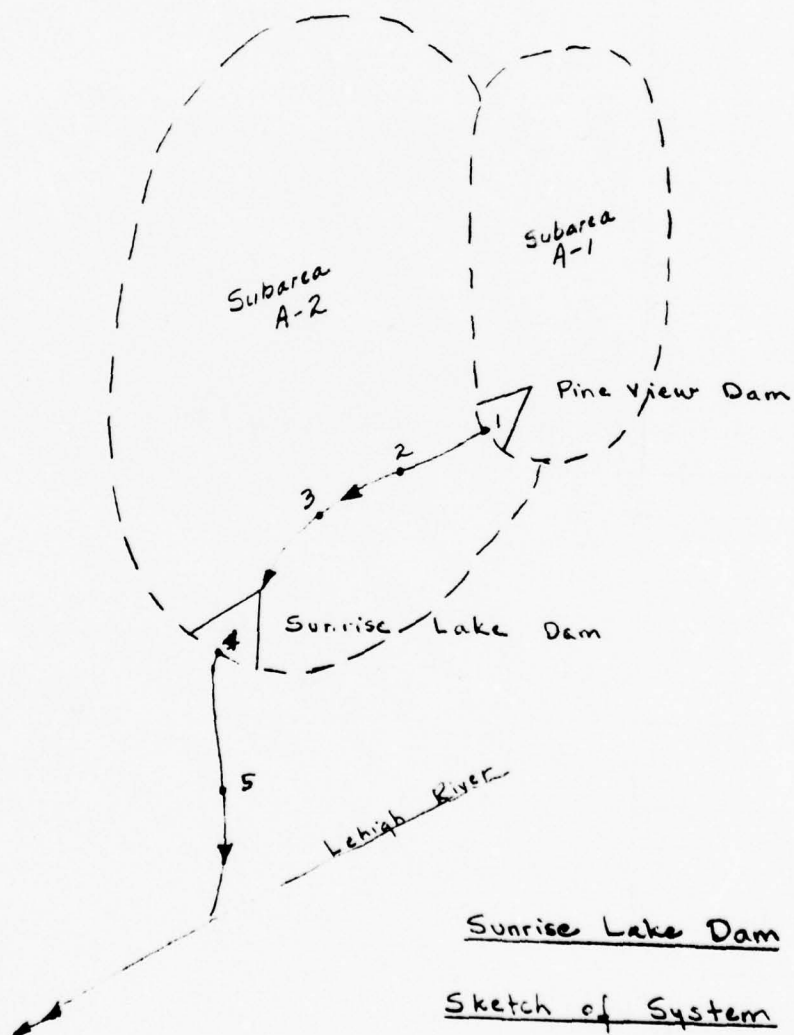 Subarea
A-1
Subarea
A-2
Pine View Dam
1
2
3
Sunrise Lake Dam
4
5
Lehigh River
Sunrise Lake Dam
Sketch of System